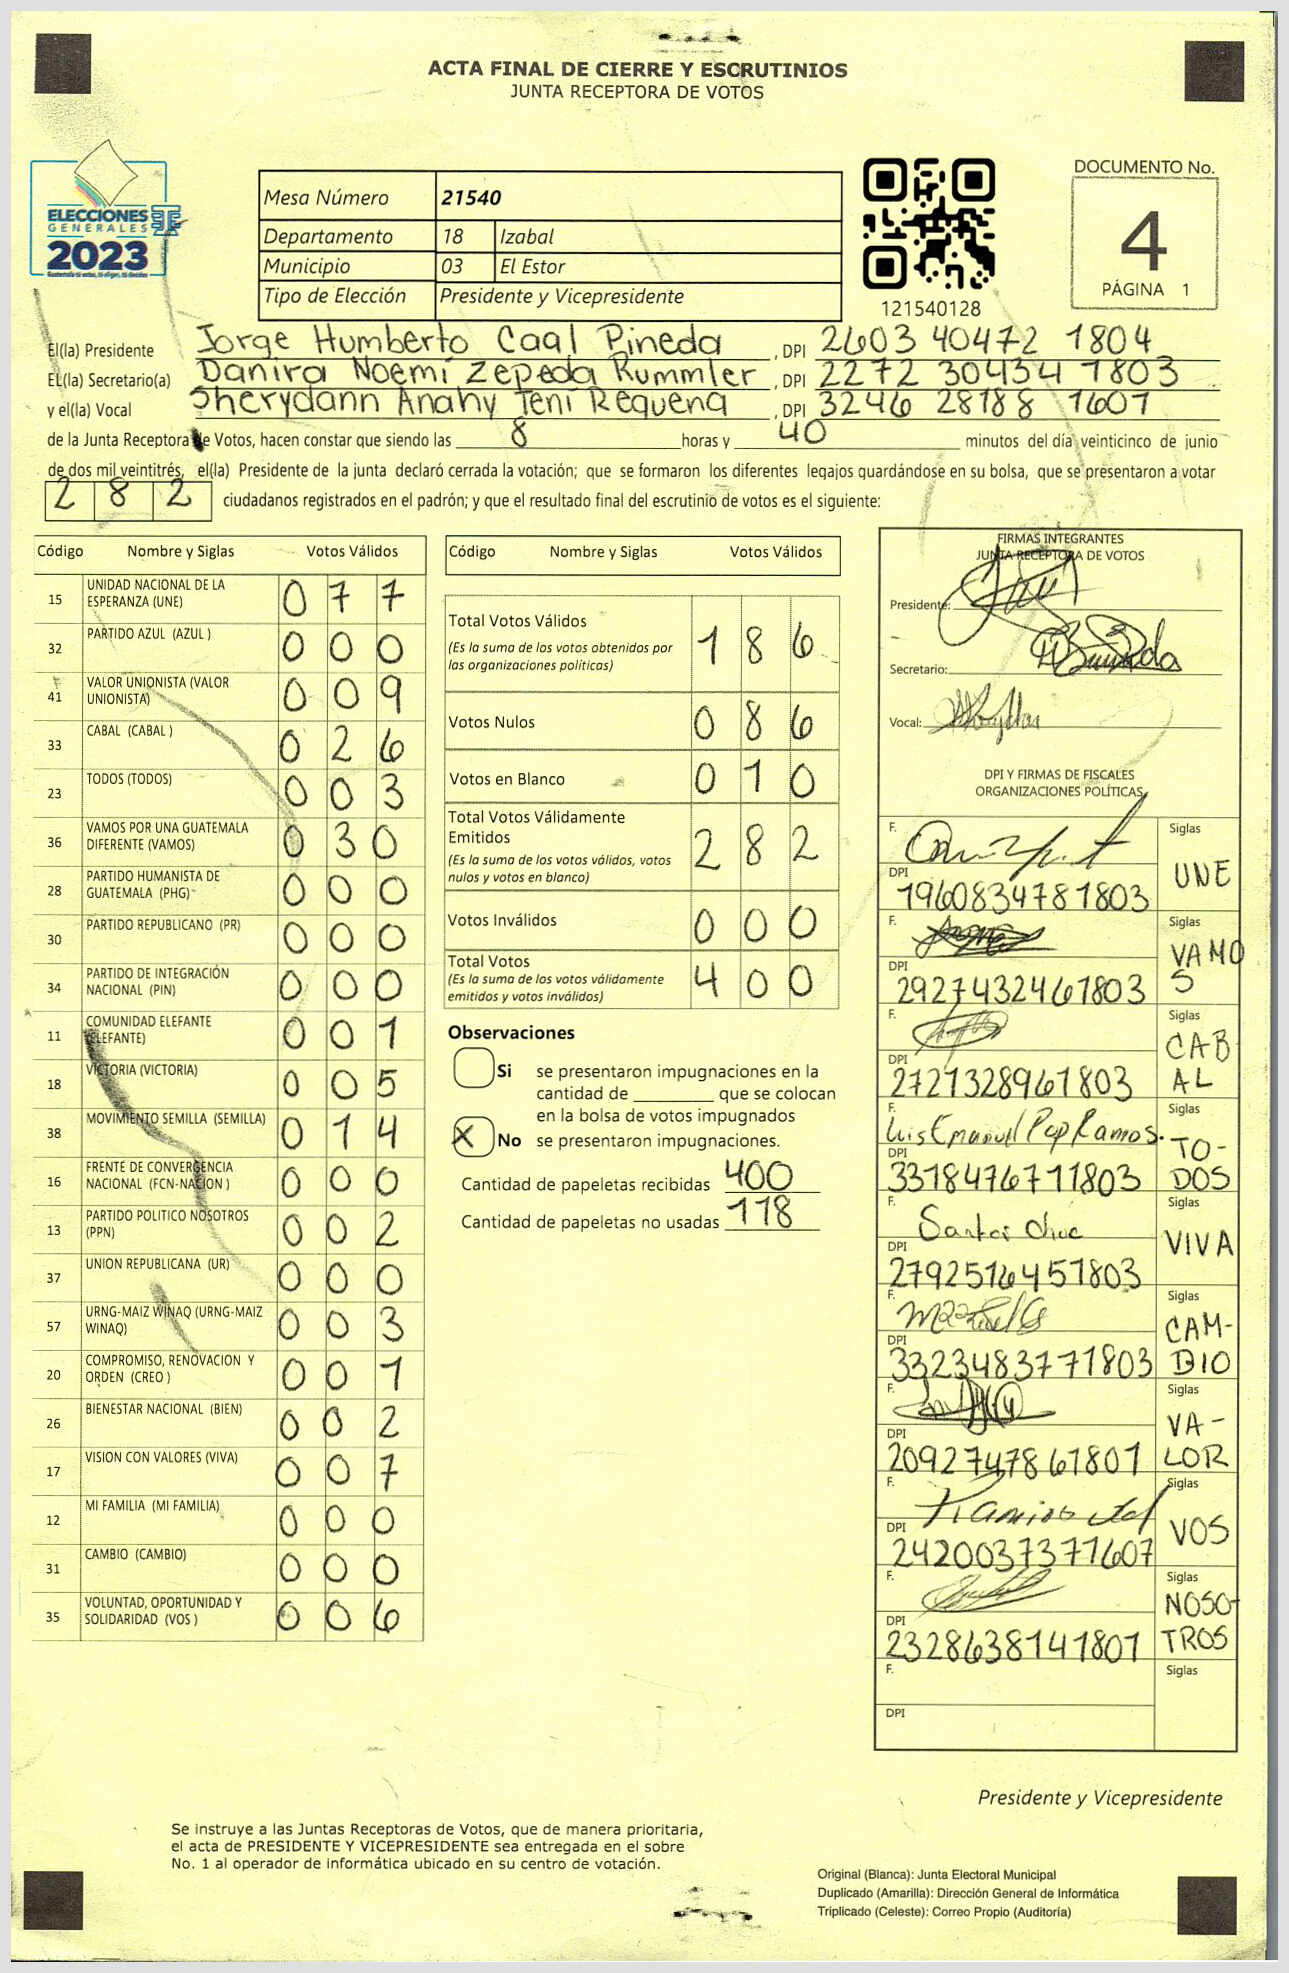 ACTA FINAL DE CIERRE Y ESCRUTINIOS
JUNTA RECEPTORA DE VOTOS
ELECCIONES
GENERALES
2023
Mesa Número 21540
Departamento 18 Izabal
Municipio 03 El Estor
Tipo de Elección Presidente y Vicepresidente
121540128
DOCUMENTO No.
4
PÁGINA 1
El(la) Presidente Jorge Humberto Caal Pineda , DPI 2603 40472 1804
EL(la) Secretario(a) Danira Noemí Zepeda Rummler , DPI 2272 30434 1803
y el(la) Vocal Sherydann Anahy Teni Requena , DPI 3246 28188 1601
de la Junta Receptora de Votos, hacen constar que siendo las 8 horas y 40 minutos del día veinticinco de junio
de dos mil veintitrés, el(la) Presidente de la junta declaró cerrada la votación; que se formaron los diferentes legajos guardándose en su bolsa, que se presentaron a votar
2 8 2 ciudadanos registrados en el padrón; y que el resultado final del escrutinio de votos es el siguiente:
Código Nombre y Siglas Votos Válidos
15 UNIDAD NACIONAL DE LA
ESPERANZA (UNE) 0 7 7
32 PARTIDO AZUL (AZUL ) 0 0 0
41 VALOR UNIONISTA (VALOR
UNIONISTA) 0 0 9
33 CABAL (CABAL ) 0 2 6
23 TODOS (TODOS) 0 0 3
36 VAMOS POR UNA GUATEMALA
DIFERENTE (VAMOS) 0 3 0
28 PARTIDO HUMANISTA DE
GUATEMALA (PHG) 0 0 0
30 PARTIDO REPUBLICANO (PR) 0 0 0
34 PARTIDO DE INTEGRACIÓN
NACIONAL (PIN) 0 0 0
11 COMUNIDAD ELEFANTE
(ELEFANTE) 0 0 1
18 VICTORIA (VICTORIA) 0 0 5
38 MOVIMIENTO SEMILLA (SEMILLA) 0 1 4
16 FRENTE DE CONVERGENCIA
NACIONAL (FCN-NACION ) 0 0 0
13 PARTIDO POLITICO NOSOTROS
(PPN) 0 0 2
37 UNION REPUBLICANA (UR) 0 0 0
57 URNG-MAIZ WINAQ (URNG-MAIZ
WINAQ) 0 0 3
20 COMPROMISO, RENOVACION Y
ORDEN (CREO ) 0 0 1
26 BIENESTAR NACIONAL (BIEN) 0 0 2
17 VISION CON VALORES (VIVA) 0 0 7
12 MI FAMILIA (MI FAMILIA) 0 0 0
31 CAMBIO (CAMBIO) 0 0 0
35 VOLUNTAD, OPORTUNIDAD Y
SOLIDARIDAD (VOS ) 0 0 6
Código Nombre y Siglas Votos Válidos
Total Votos Válidos 1 8 6
(Es la suma de los votos obtenidos por
las organizaciones políticas)
Votos Nulos 0 8 6
Votos en Blanco 0 1 0
Total Votos Válidamente
Emitidos 2 8 2
(Es la suma de los votos válidos, votos
nulos y votos en blanco)
Votos Inválidos 0 0 0
Total Votos 4 0 0
(Es la suma de los votos válidamente
emitidos y votos inválidos)
Observaciones
Si se presentaron impugnaciones en la
cantidad de ________ que se colocan
en la bolsa de votos impugnados
X No se presentaron impugnaciones.
Cantidad de papeletas recibidas 400
Cantidad de papeletas no usadas 118
FIRMAS INTEGRANTES
JUNTA RECEPTORA DE VOTOS
Presidente:
Secretario:
Vocal:
DPI Y FIRMAS DE FISCALES
ORGANIZACIONES POLÍTICAS
F. Siglas
DPI UNE
1960834781803
F. Siglas
DPI VAMO
S
2927432461803
F. Siglas
DPI CAB
AL
2721328961803
F. Luis Emanuel Pop Ramos. Siglas
DPI TO-
DOS
3318476711803
F. Santos Choc Siglas
DPI VIVA
2792516451803
F. Siglas
DPI CAM-
BIO
3323483771803
F. Siglas
DPI VA-
LOR
2092747861801
F. Siglas
DPI VOS
2420037371607
F. Siglas
DPI NOSO-
TROS
2328638141801
F. Siglas
DPI
Presidente y Vicepresidente
Se instruye a las Juntas Receptoras de Votos, que de manera prioritaria,
el acta de PRESIDENTE Y VICEPRESIDENTE sea entregada en el sobre
No. 1 al operador de informática ubicado en su centro de votación.
Original (Blanca): Junta Electoral Municipal
Duplicado (Amarilla): Dirección General de Informática
Triplicado (Celeste): Correo Propio (Auditoría)